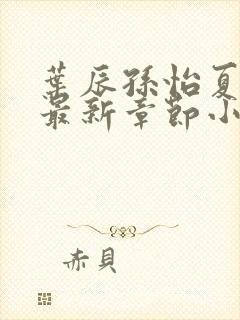 葉辰孫怡夏
最新章節小
赤貝